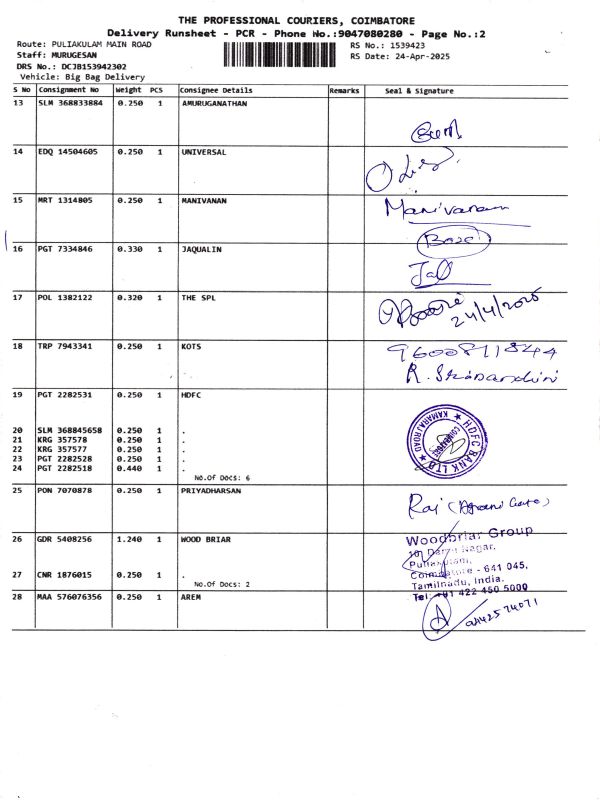 THE PROFESSIONAL COURIERS, COIMBATORE
Delivery Runsheet - PCR - Phone No.:9047080280 - Page No.:2
Route: PULIAKULAM MAIN ROAD RS No.: 1539423
Staff: MURUGESAN RS Date: 24-Apr-2025
DRS No.: DCJB153942302
Vehicle: Big Bag Delivery
S No Consignment No Weight PCS Consignee Details Remarks Seal & Signature
13 SLM 368833884 0.250 1 AMURUGANATHAN
14 EDQ 14504605 0.250 1 UNIVERSAL
15 MRT 1314805 0.250 1 MANIVANAN
Manivanam
16 PGT 7334846 0.330 1 JAQUALIN
17 POL 1382122 0.320 1 THE SPL
24/4/2025
18 TRP 7943341 0.250 1 KOTS
9600811844
19 PGT 2282531 0.250 1 HDFC
HDFC BANK LTD
KAMARAJ ROAD
COIMBATORE
20 SLM 368845658 0.250 1 .
21 KRG 357578 0.250 1 .
22 KRG 357577 0.250 1 .
23 PGT 2282528 0.250 1 .
24 PGT 2282518 0.440 1 .
No.Of Docs: 6
25 PON 7070878 0.250 1 PRIYADHARSAN
26 GDR 5408256 1.240 1 WOOD BRIAR
Woodbriar Group
Nagar,
Coimbatore - 641 045,
Tamilnadu, India.
Tel: +91 422 450 5000
27 CNR 1876015 0.250 1 .
No.Of Docs: 2
28 MAA 576076356 0.250 1 AREM